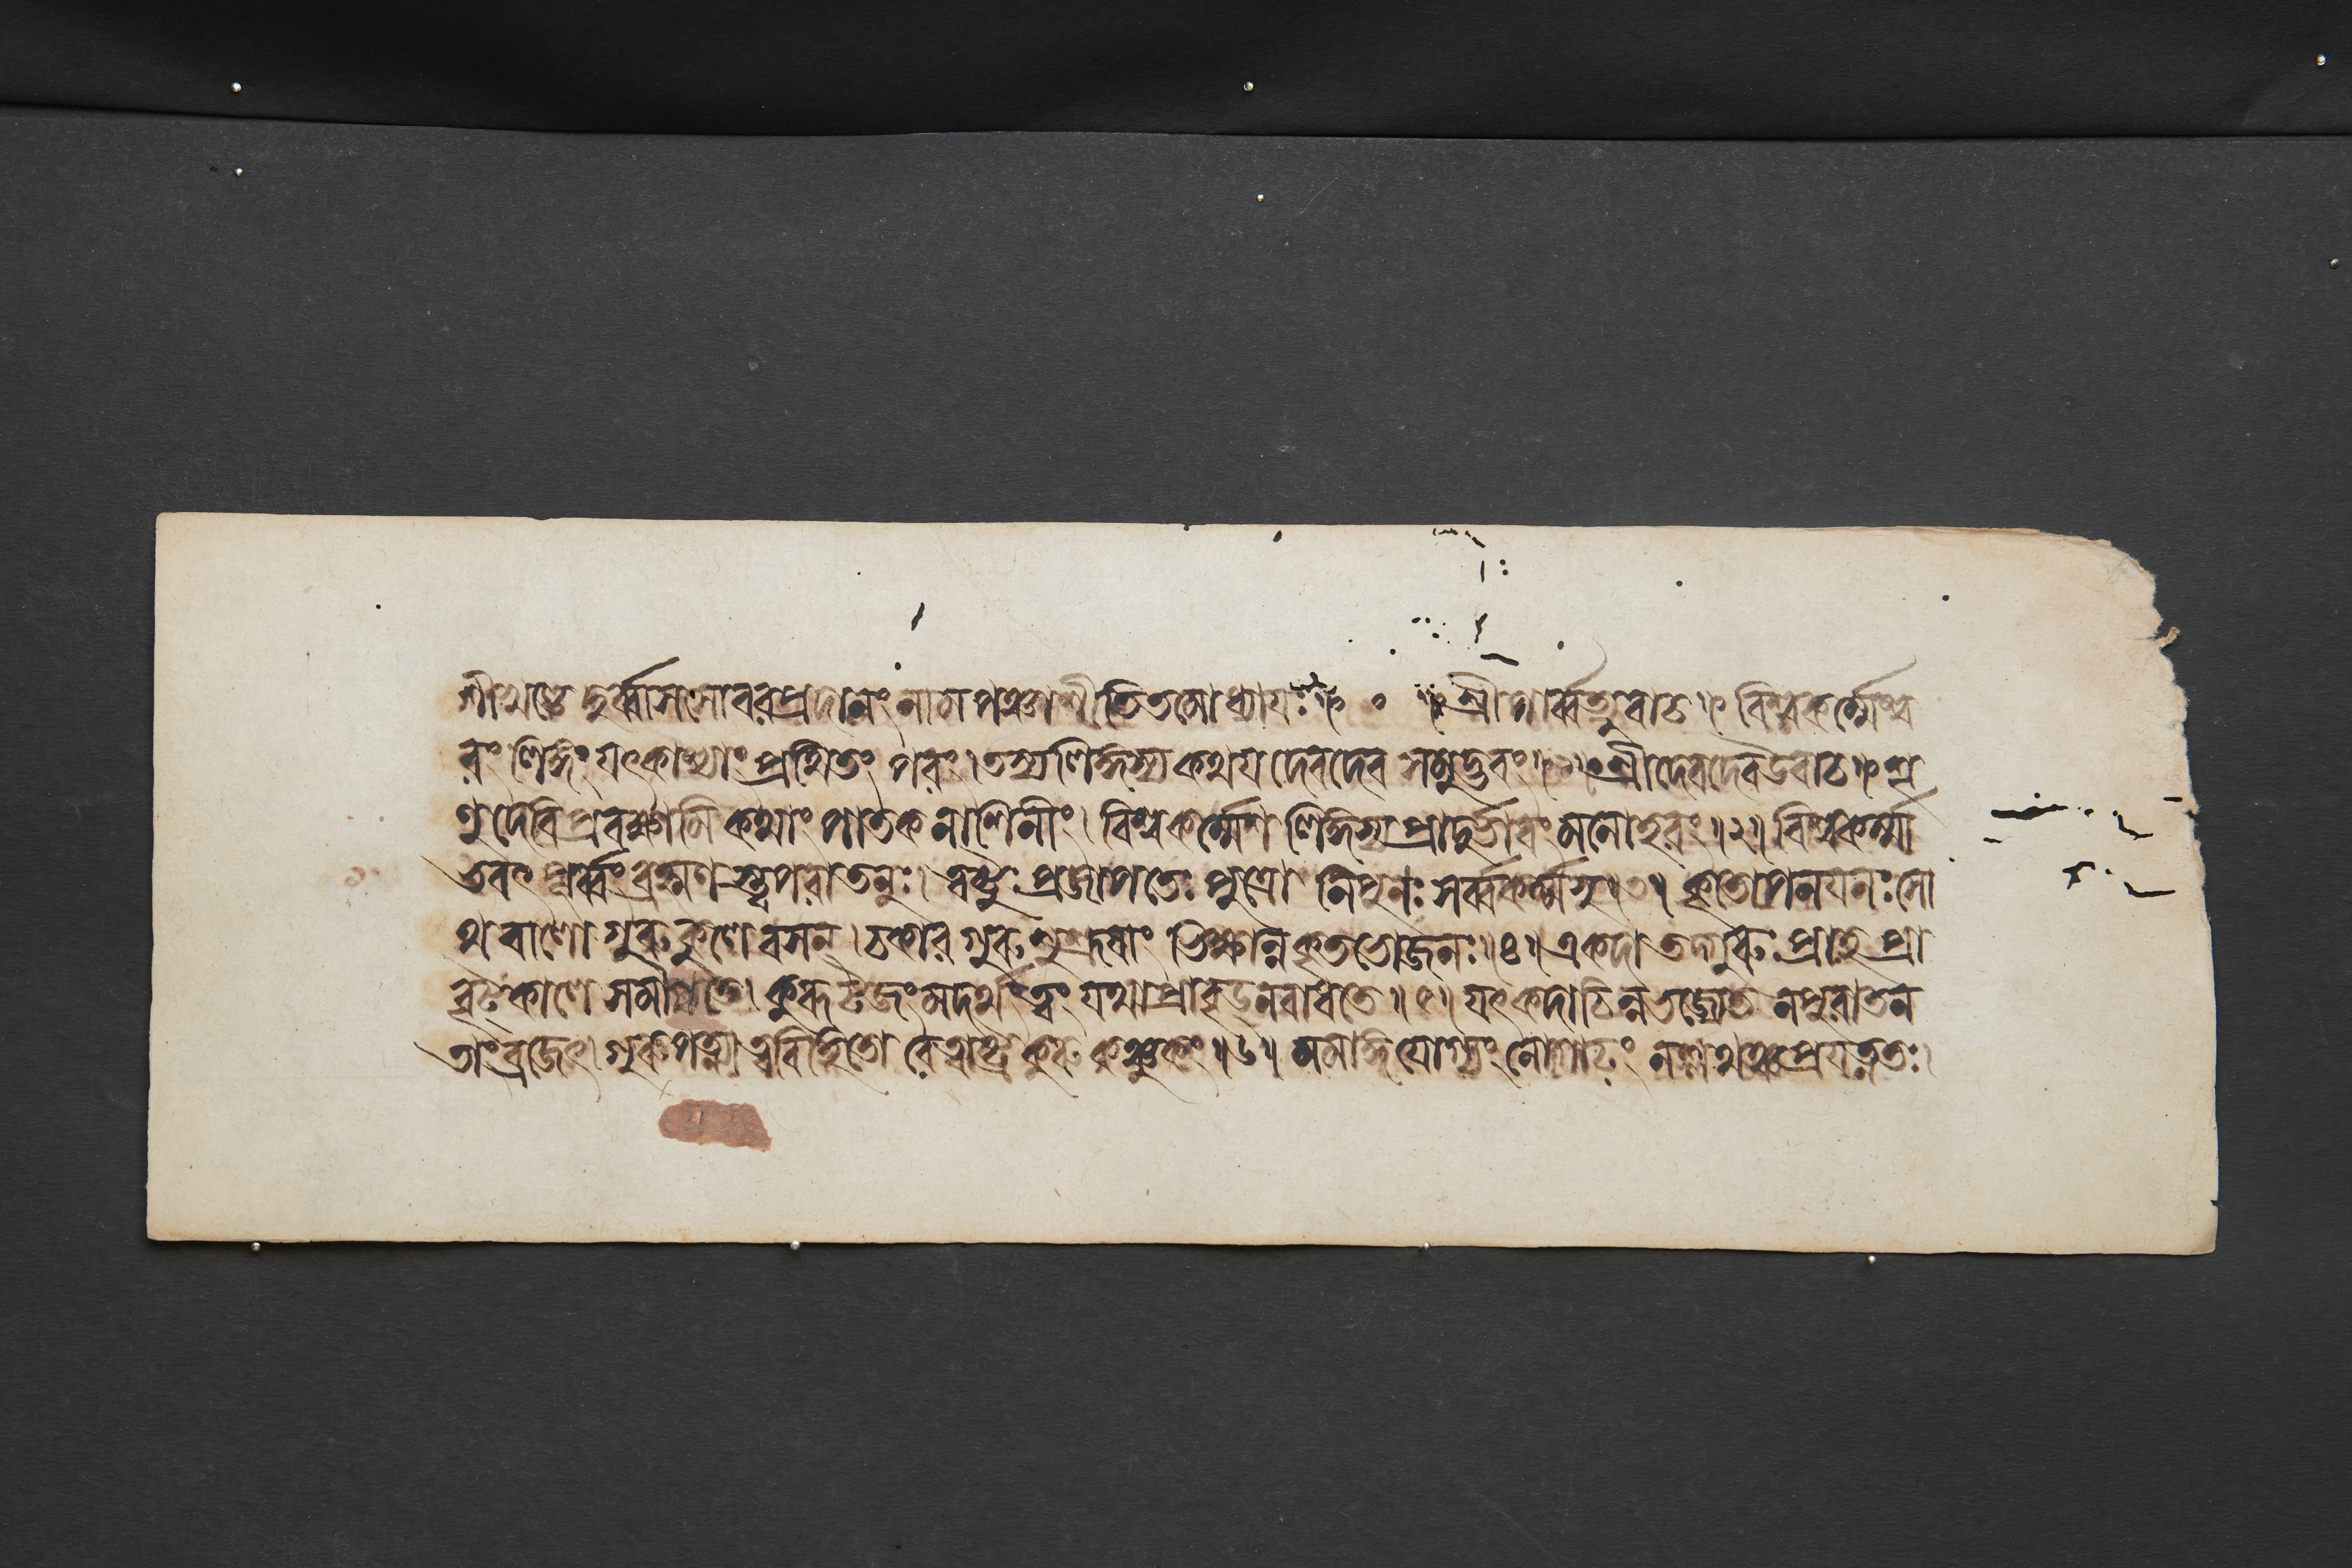 শীখণ্ডে দুর্ব্বাসসো বরপ্রদানং নাম পঞ্চাশীতিতমোধ্যায়ঃ ॥ ০ ॥ শ্রীপার্ব্বত্যুবাচ ॥ বিশ্বকর্ম্মেশ্ব
রং লিঙ্গং যৎকাশ্যাং প্রথিতং পরং । তস্য লিঙ্গস্য কথয় দেবদেব সমুদ্ভবং ॥ ১ ॥ শ্রীদেবদেব উবাচ ॥ শৃ
ণু দেবি প্রবক্ষ্যামি কথাং পাতকনাশিনীং । বিশ্বকর্ম্মেশ লিঙ্গস্য প্রাদুর্ভাবং মনোহরং ॥ ২ ॥ বিশ্বকর্ম্মা
ভবৎ পূর্ব্বং ব্রহ্মণস্ত্বপরাতনুঃ । ত্বষ্টুঃ প্রজাপতেঃ পুত্রো নিপুনঃ সর্ব্বকর্ম্মসু ॥ ৩ ॥ কৃতোপনয়নঃ সো
থ বালো গুরুকুলে বসন্ । চকার গুরুশুশ্রূষাং ভিক্ষান্নকৃতভোজনঃ ॥ ৪ ॥ একদা তদ্গুরুঃ প্রাহ প্রা
বৃট্কালে সমাগতে । কুরূটজং মদর্থং ত্বং যথা প্রাবৃড্ন বাধতে ॥ ৫ ॥ যৎ কদাচিন্ন ভজ্যেত ন পুরাতন
তাং ব্রজেৎ । গুরুপত্ন্যা ত্বভিহিতো রে ত্বাষ্ট্র কুরু কঞ্চুকং ॥ ৬ ॥ মমাঙ্গযোগ্যং নো গাঢ়ং ন শ্লথঞ্চ প্রযত্নতঃ ।